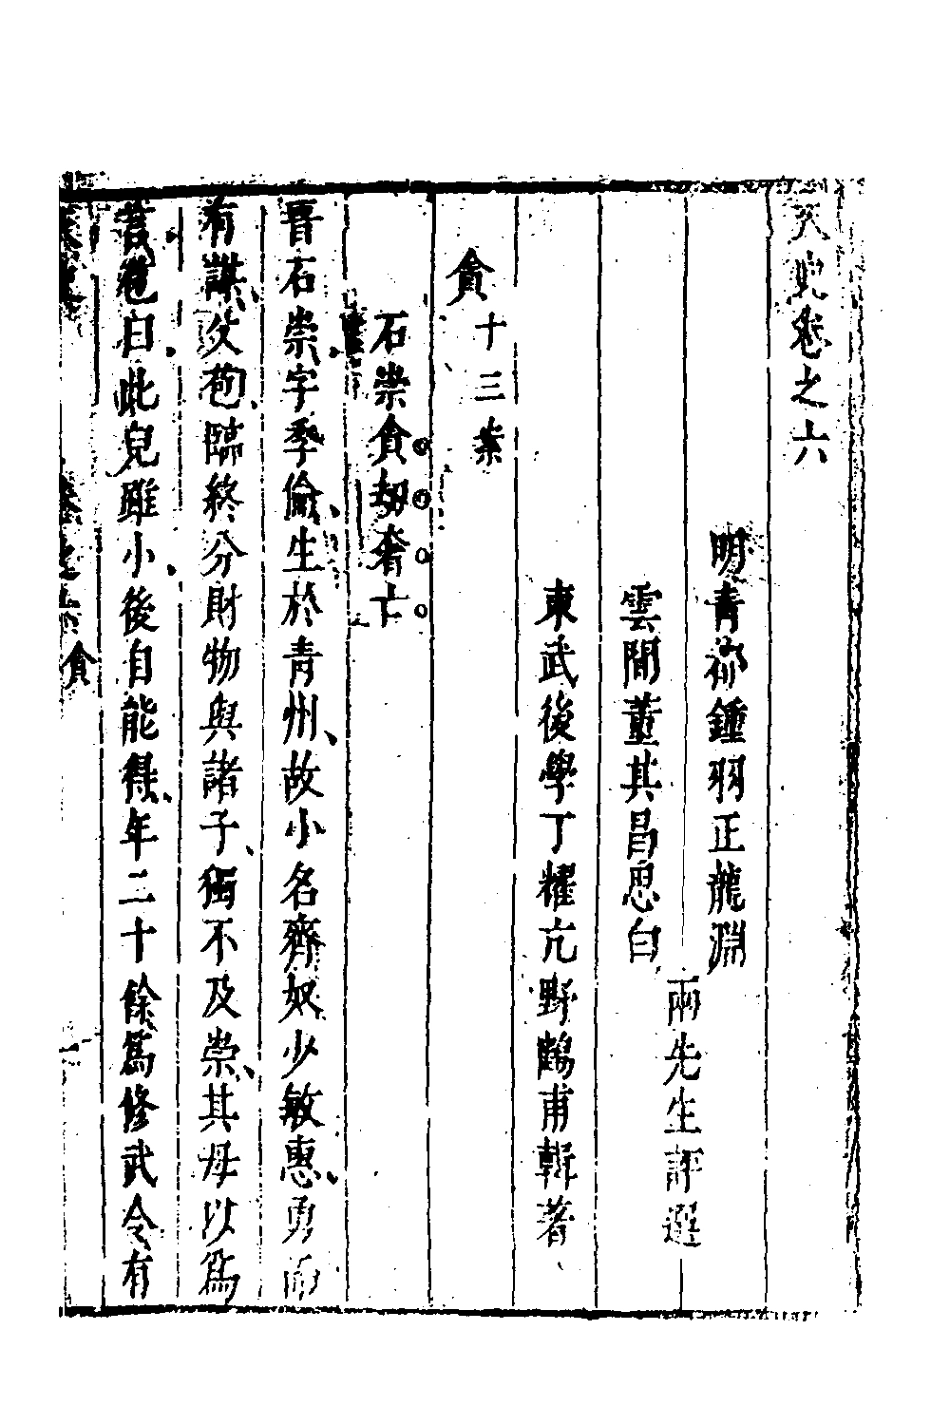 天史卷之六
明青社鍾羽正龍淵
雲間董其昌思白
兩先生評選
東武後學丁耀亢野鶴甫輯著
貪十三案
石崇貪劫奢亡
晉石崇字季倫生於青州故小名齊奴少敏惠勇而
有謀父苞臨終分財物與諸子獨不及崇其母以爲
言苞曰此兒雖小後自能得年二十餘爲修武令有
卷之六 貪 一